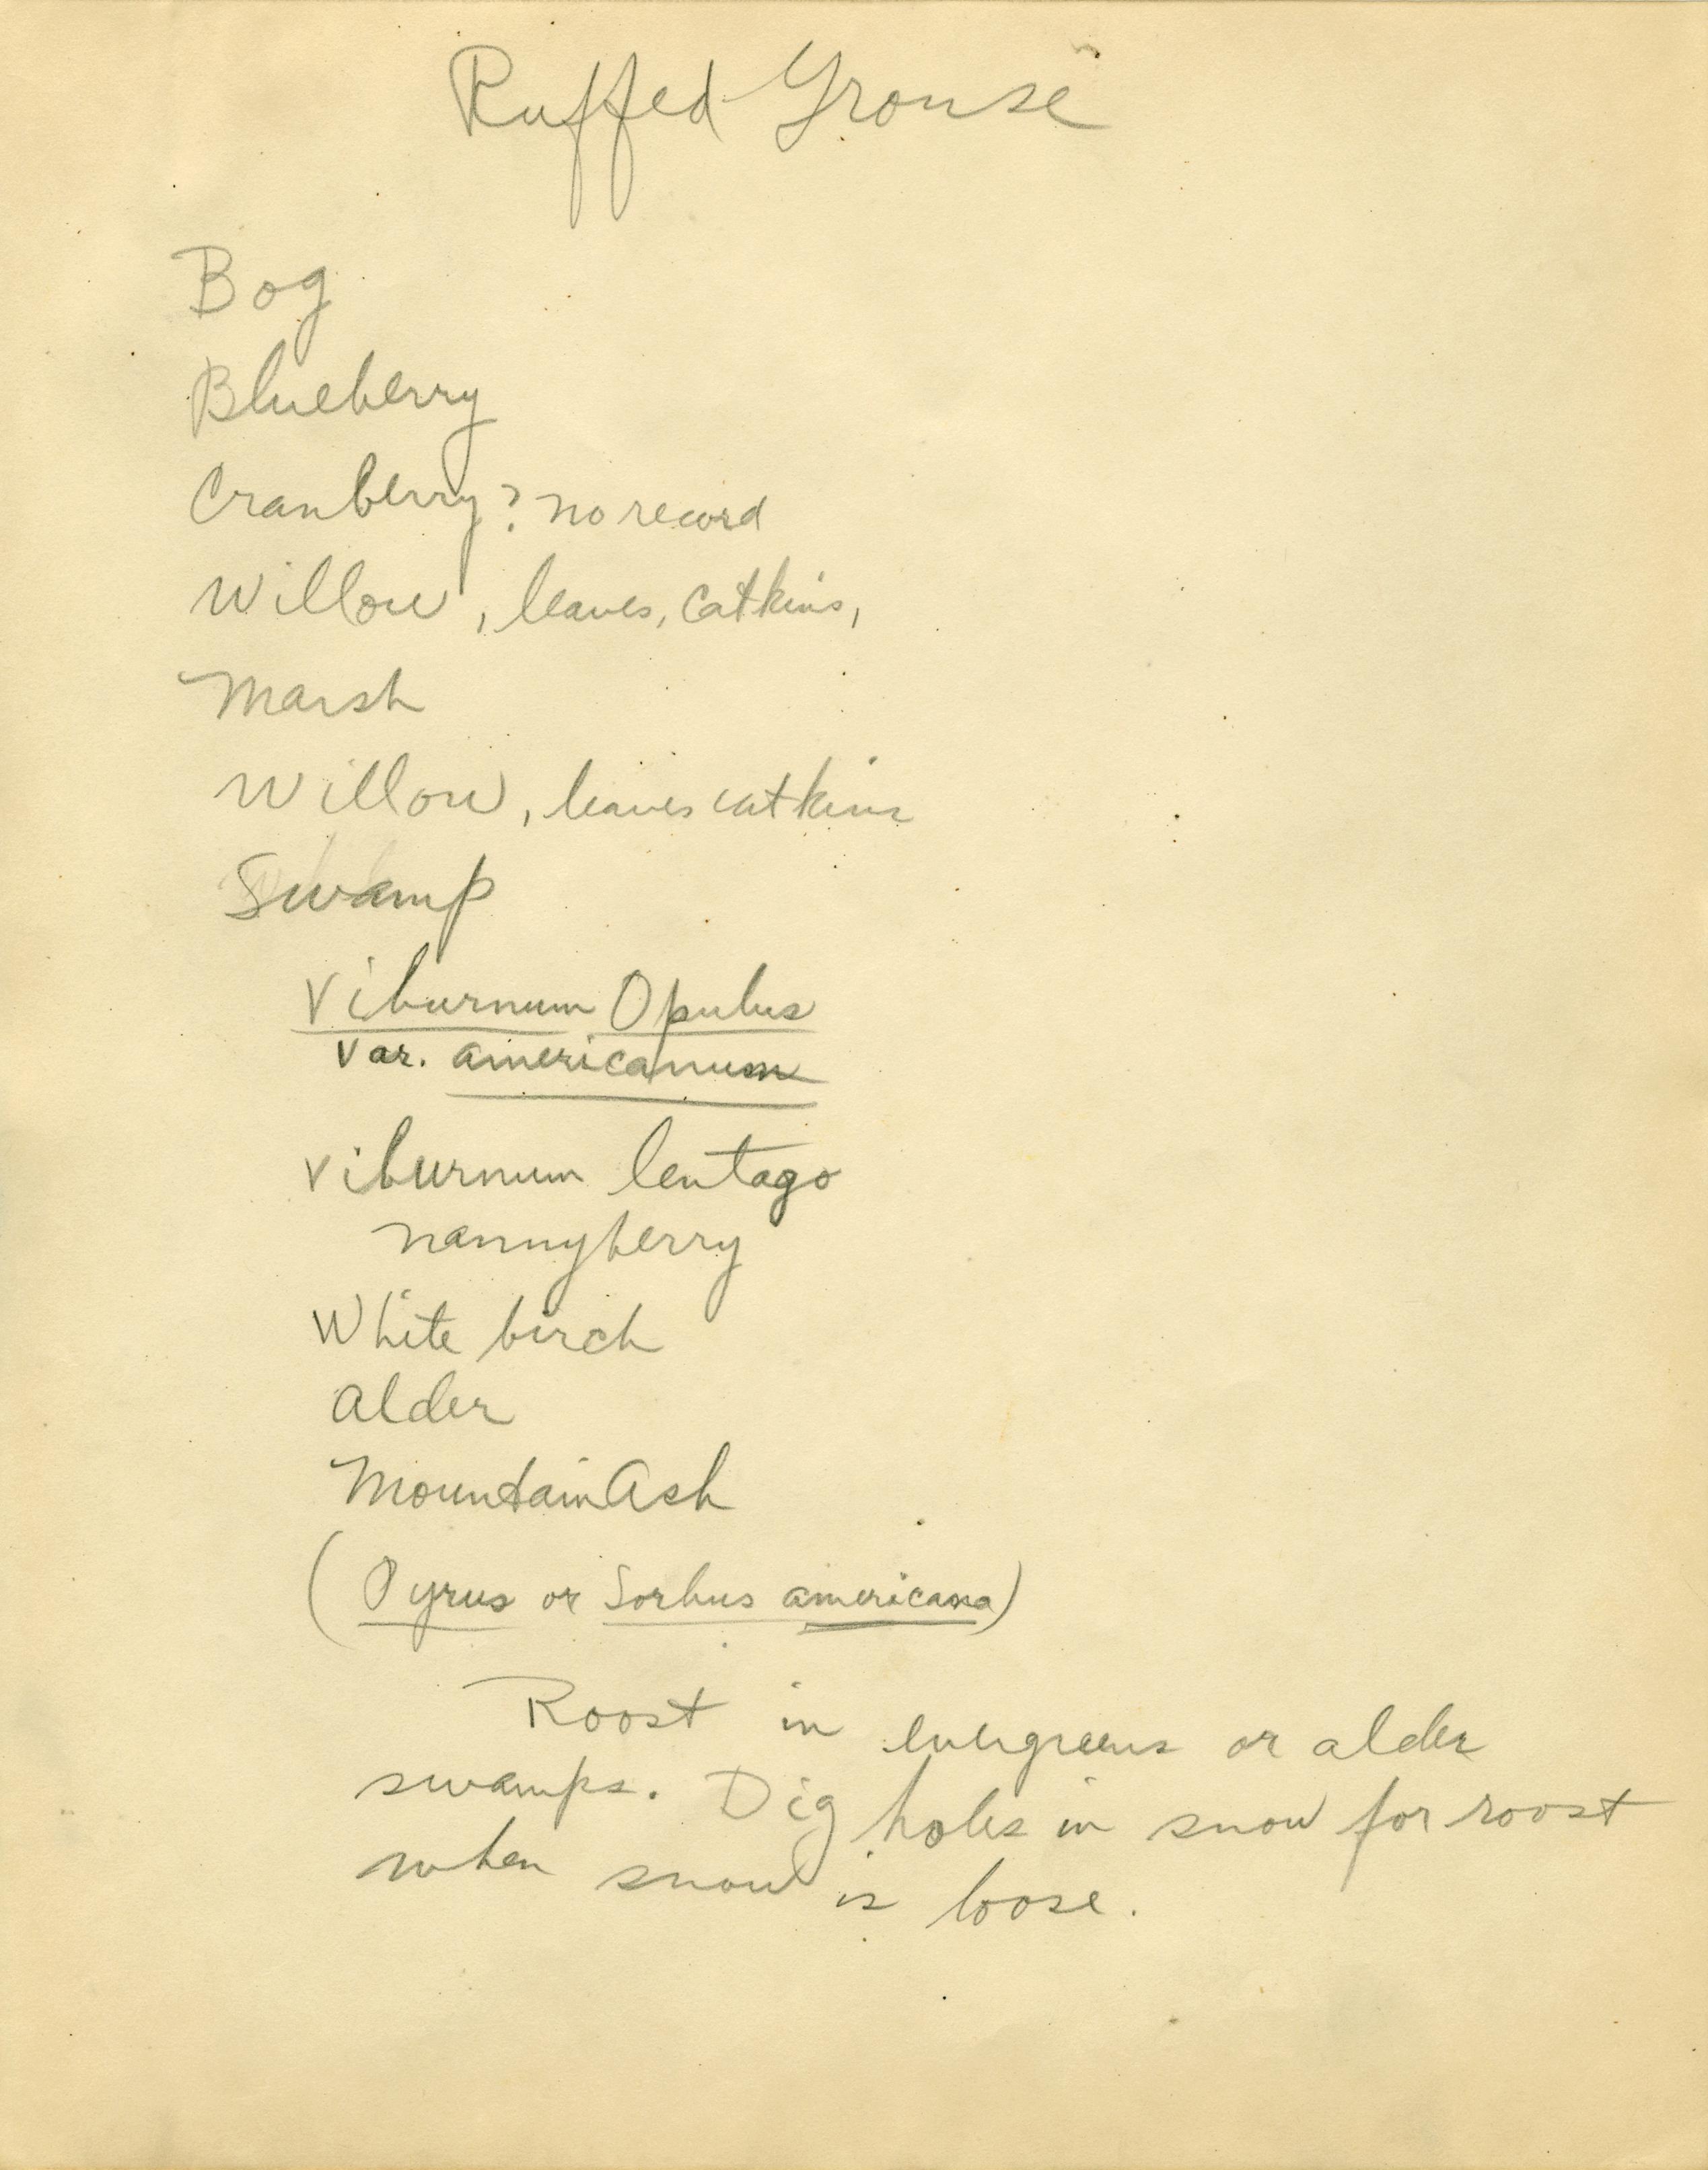 Ruffed Grouse
Bog
Blueberry
Cranberry? no record
Willow, leaves, catkins,
Marsh
Willow, leaves catkins
Swamp
Viburnum Opulus
var. americanum
Viburnum lentago
nannyberry
White birch
alder
Mountain Ash
(Pyrus or Sorbus americana)
Roost in evergreens or alder
swamps. Dig holes in snow for roost
when snow is loose.